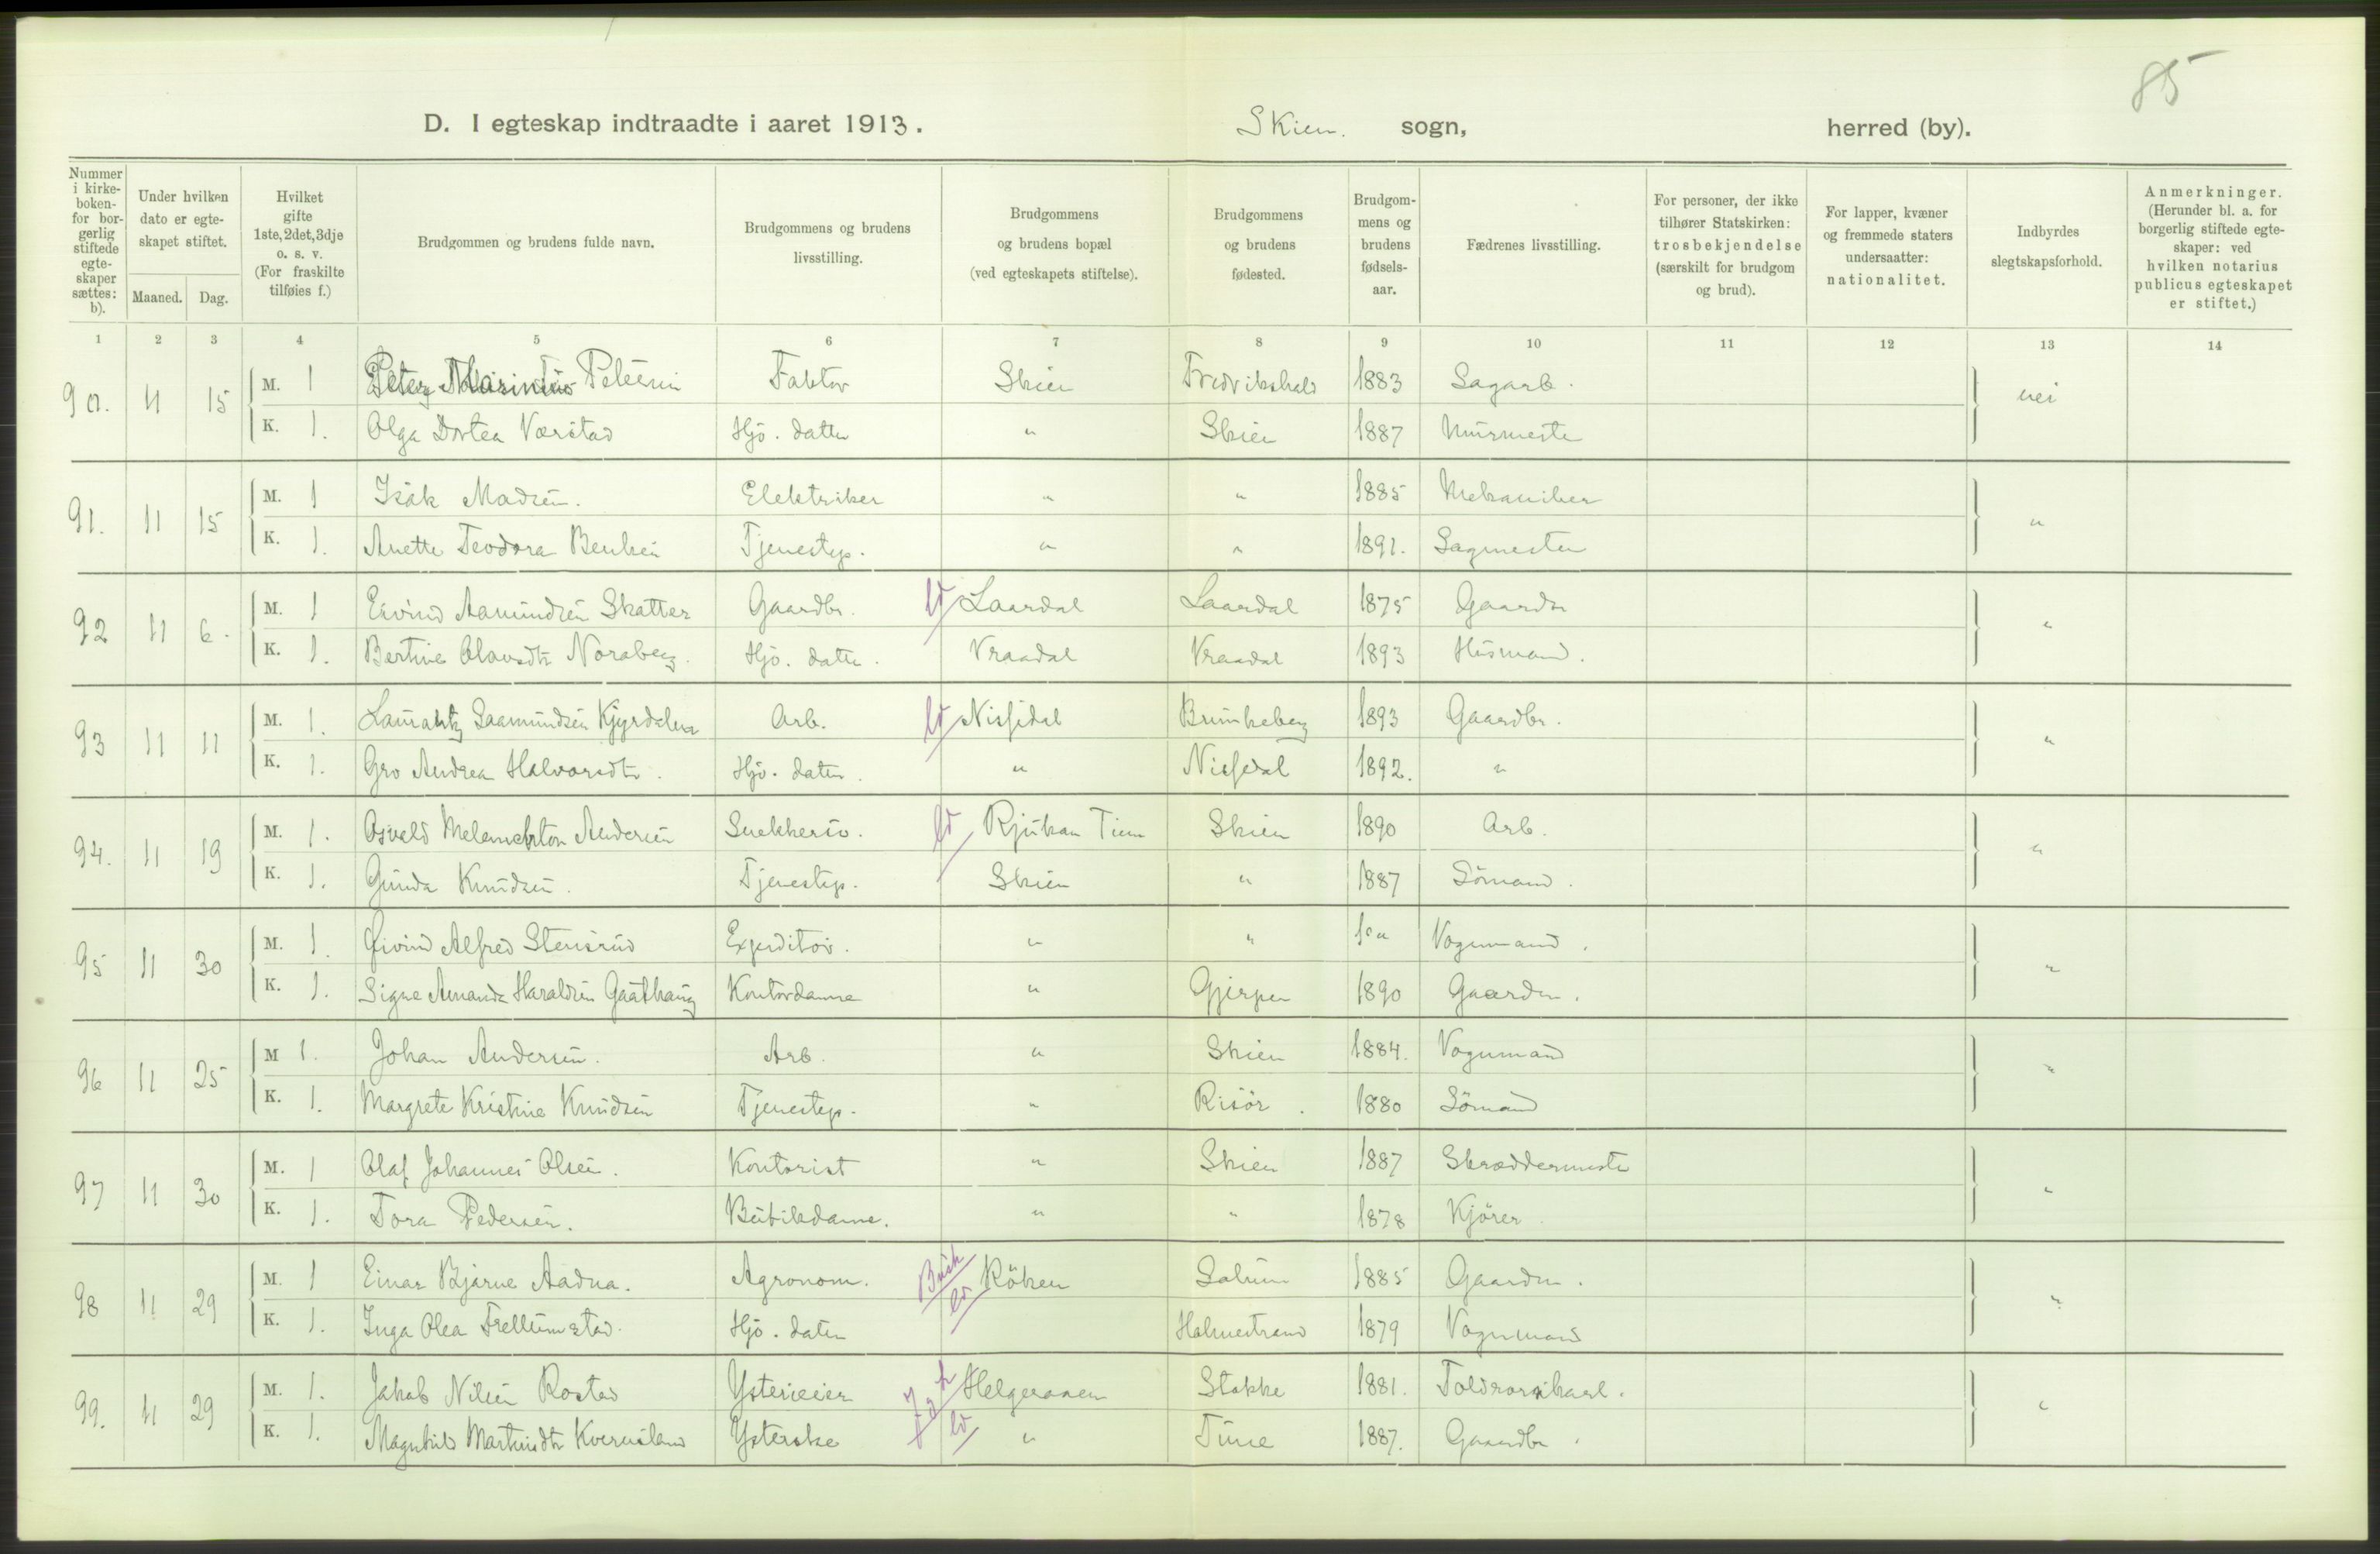 85
D. I egteskap indtraadte i aaret 1913. Skien. sogn, herred (by).
Nummer i kirke-boken- for bor-gerlig stiftede egte-skaper sættes: b).
Under hvilken dato er egte-skapet stiftet.
Maaned. Dag.
Hvilket gifte 1ste, 2det, 3dje o. s. v. (For fraskilte tilføies f.)
Brudgommen og brudens fulde navn.
Brudgommens og brudens livsstilling.
Brudgommens og brudens bopæl (ved egteskapets stiftelse).
Brudgommens og brudens fødested.
Brudgom-mens og brudens fødsels-aar.
Fædrenes livsstilling.
For personer, der ikke tilhører Statskirken: trosbekjendelse (særskilt for brudgom og brud).
For lapper, kvæner og fremmede staters undersaatter: nationalitet.
Indbyrdes slegtskapsforhold.
Anmerkninger. (Herunder bl. a. for borgerlig stiftede egte-skaper: ved hvilken notarius publicus egteskapet er stiftet.)
1 2 3 4 5 6 7 8 9 10 11 12 13 14
90. 11 15 M. 1 Peter Marinius Faktor Skien Fredrikshald 1883 Sagarb. nei
K. 1. Olga Dortea Værstad Hjs. datter " Skien 1887 Murmester
91. 11 15 M. 1 Isak Madsen. Elektriker " " 1885 Mekaniker "
K. 1. Anette Teodora Tjenestep. " " 1891. Sagmester
92 11 6. M. 1 Eivind Aamundsen Skatter Gaardbr. Laardal Laardal 1875 Gaardbr "
K. 1. Bertine Olavsdtr Noraberg. Hjs. datter. Vraadal Vraadal 1893 Husmand.
93 11 11 M. 1. Saamundsen Arb. Nissedal Brunkeberg 1893 Gaardbr. "
K. 1. Gro Andrea Halvorsdtr. Hjs. datter. " Nissedal 1892. "
94. 11 19 M. 1. Osvald Melanchton Andersen Snekkersv. Rjukan Tinn Skien 1890 Arb. "
K. 1. Gunda Knudsen. Tjenestep. Skien " 1887 Sömand.
95 11 30 M. 1. Øivind Alfred Stensrud Expeditör. " " " Vognmand. "
K. 1. Signe Amanda Haraldsen Kontordame " Gjerpen 1890 Gaardbr.
96 11 25 M 1. Johan Andersen. Arb. " Skien 1884. Vognmand "
K. 1. Margrete Kristine Knudsen Tjenestep. " Risör. 1880 Sömand
97 11 30 M. 1 Olaf Johannes Olsen. Kontorist " Skien 1887 Skræddermester "
K. 1. Tora Pedersen. Butikdame. " " 1878 Kjörer.
98 11 29 M. 1 Einar Bjarne Aadna. Agronom. Busk Röken Solum 1885 Gaardbr. "
K. 1. Inga Olea Trellumstad. Hjs. datter Holmestrand 1879 Vognmand
99. 11 29 M. 1. Jakob Nilsen Rostad Ysterieier Helgeraaen Stokke 1881. "
K. 1. Magnhild Martinsdtr Kvernsland Ysterske " Tune 1887. Gaardbr.